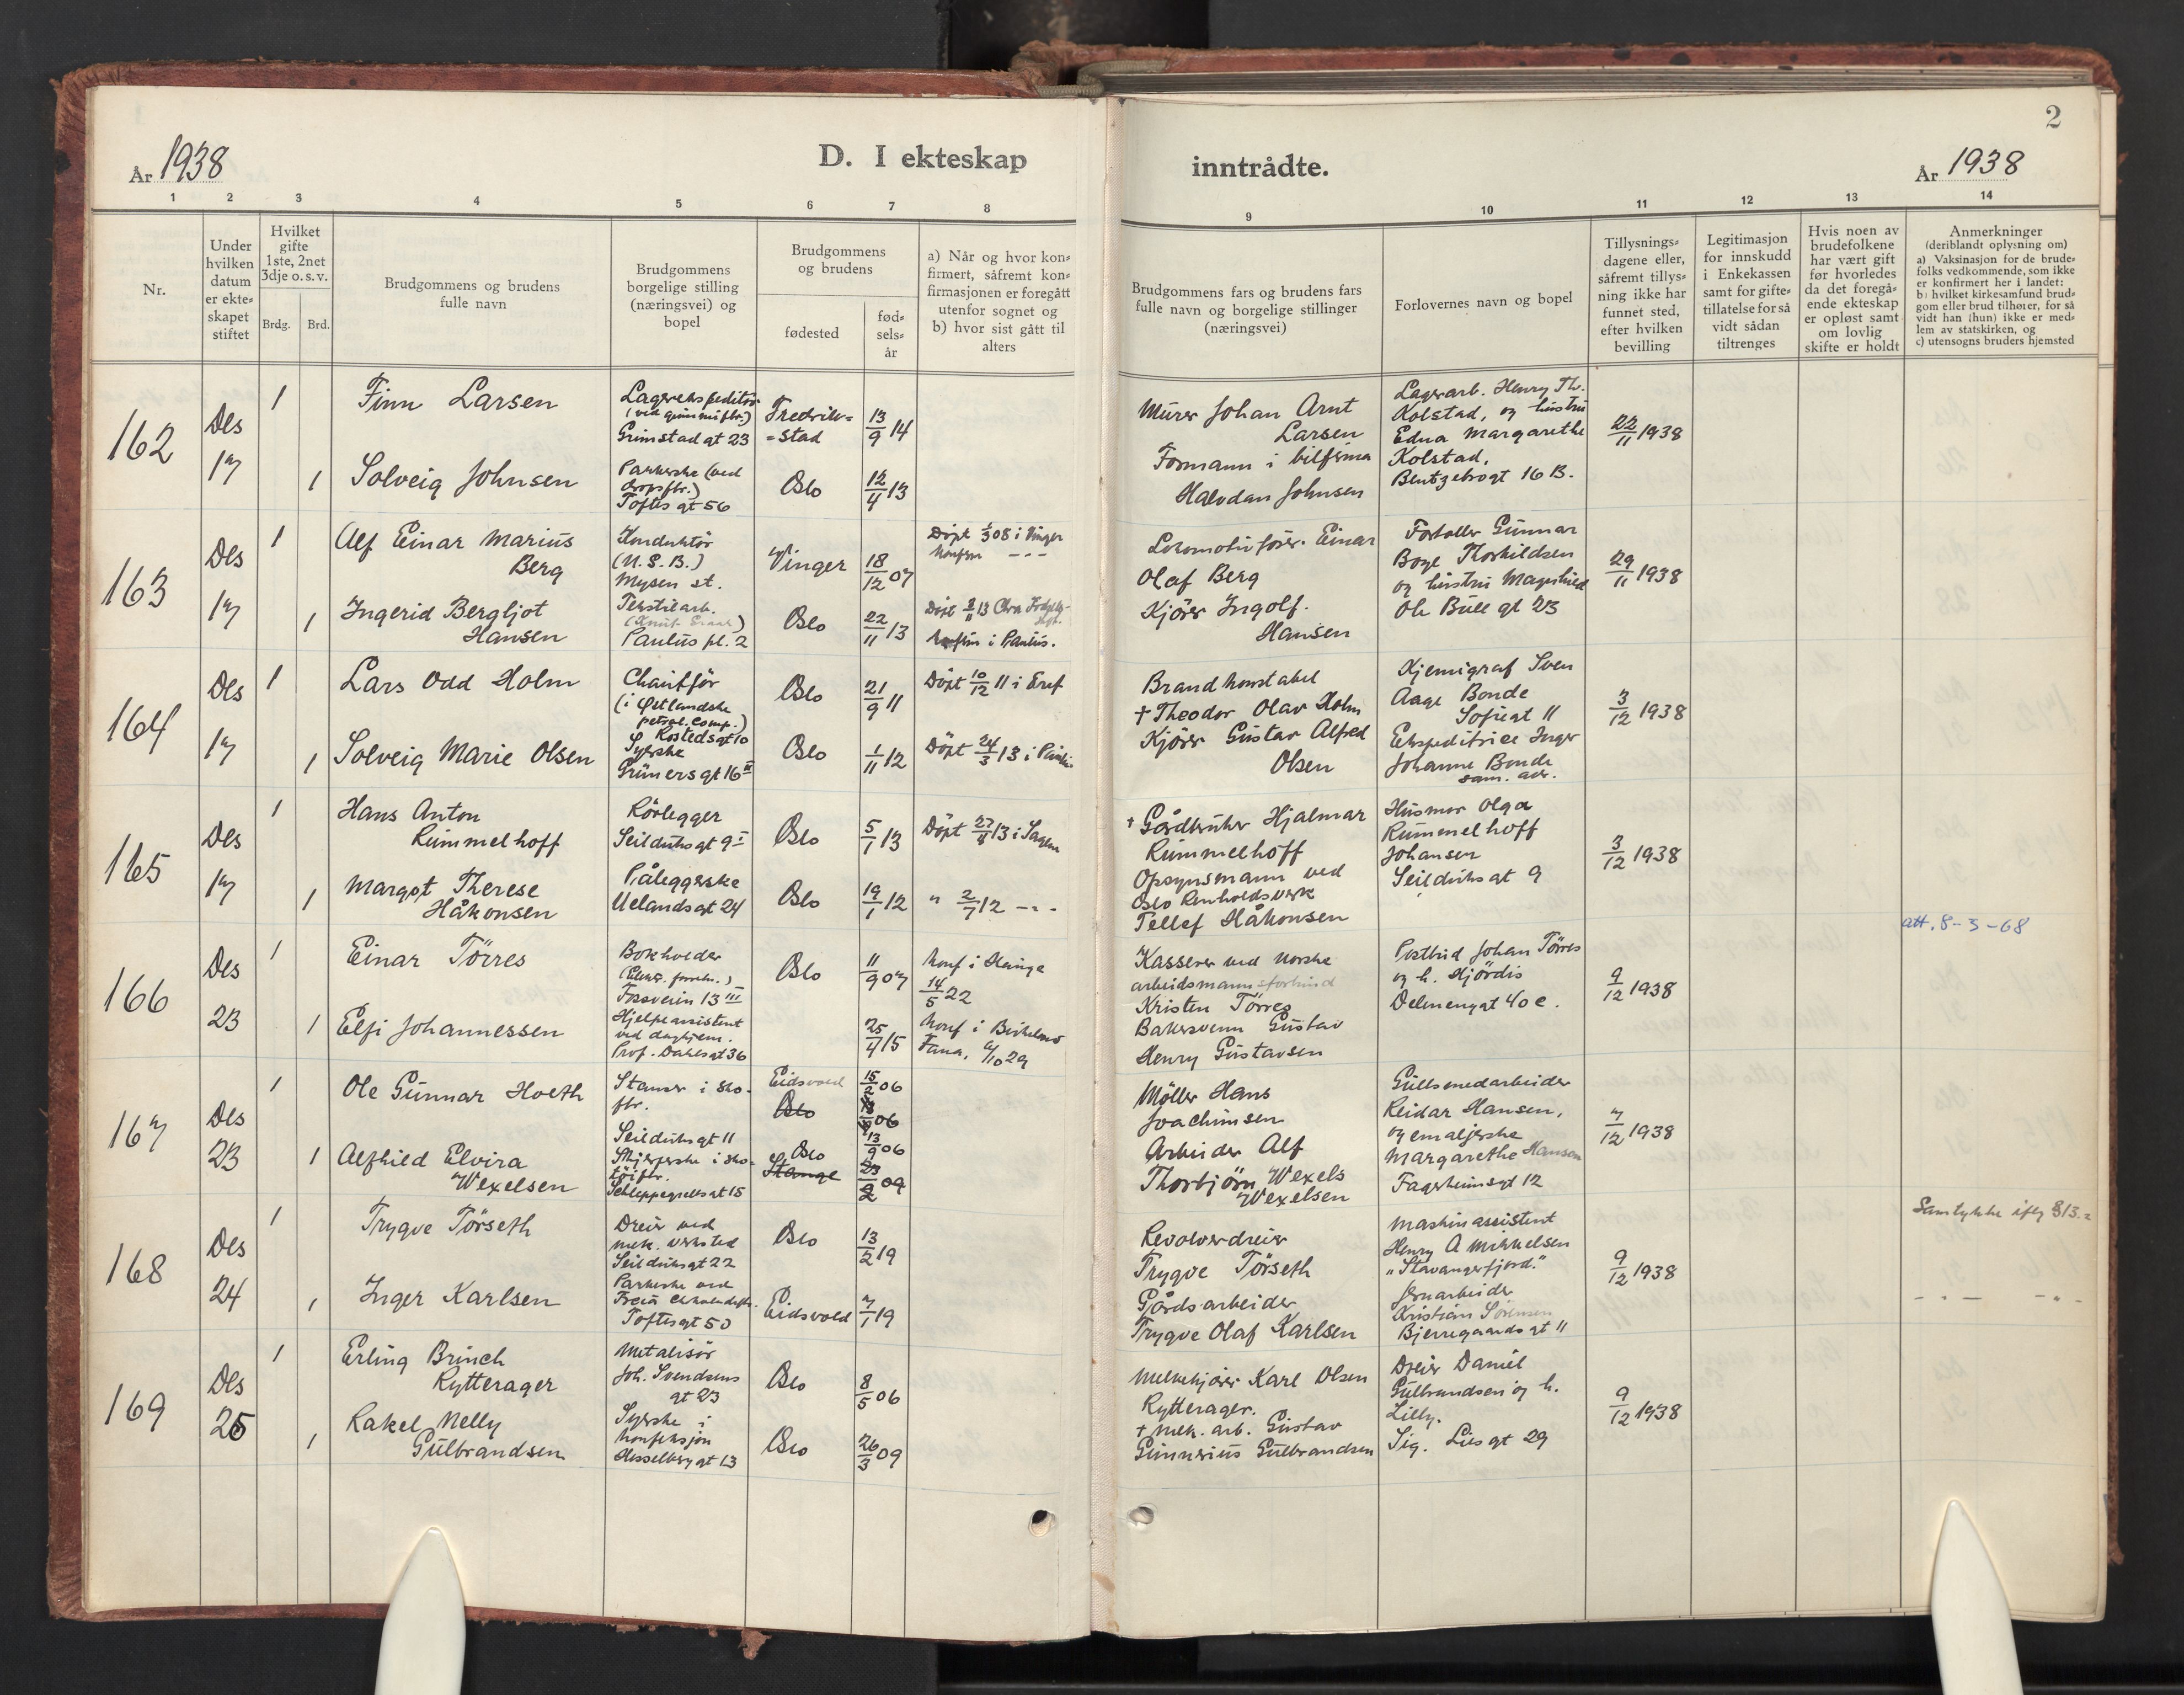 2
År 1938
D. I ekteskap
inntrådte.
År 1938
1 2 3 4 5 6 7 8 9 10 11 12 13 14
Nr.
Under
hvilken
datum
er ekte-
skapet
stiftet
Hvilket
gifte
1ste, 2net
3dje o.s.v.
Brdg.
Brd.
Brudgommens og brudens
fulle navn
Brudgommens
borgelige stilling
(næringsvei) og
bopel
Brudgommens
og brudens
fødested
fød-
sels-
år
a) Når og hvor kon-
firmert, såfremt kon-
firmasjonen er foregått
utenfor sognet og
b) hvor sist gått til
alters
Brudgommens fars og brudens fars
fulle navn og borgelige stillinger
(næringsvei)
Forlovernes navn og bopel
Tillysnings-
dagene eller,
såfremt tillys-
ning ikke har
funnet sted,
efter hvilken
bevilling
Legitimasjon
for innskudd
i Enkekassen
samt for gifte-
tillatelse for så
vidt sådan
tiltrenges
Hvis noen av
brudefolkene
har vært gift
før hvorledes
da det foregå-
ende ekteskap
er opløst samt
om lovlig
skifte er holdt
Anmerkninger
(deriblandt oplysning om)
a) Vaksinasjon for de brude-
folks vedkommende, som ikke
er konfirmert her i landet:
b) hvilket kirkesamfund brud-
gom eller brud tilhører, for så
vidt han (hun) ikke er med-
lem av statskirken, og
c) utensogns bruders hjemsted
162
Des
17
1
Finn Larsen
Lagerekspeditør
(ved gummifbr.)
Grimstad gt 23
Fredrik-
=stad
13/9 14
1
Solveig Johnsen
Pakkerske (ved
dropsfbr.)
Toftes gt 56
Oslo
12/4 13
Murer Johan Arnt
Larsen
Formann i bilfirma
Halvdan Johnsen
Lagerarb. Henry Th.
Kolstad, og hustru
Edna Margarethe
Kolstad,
Bentzebrogt 16 B.
22/11 1938
163
Des
17
1
Alf Einar Marius
Berg
Konduktör
(N.S.B.)
Mysen st.
Vinger
18/12 07
Döpt 1/3 08 i Vinger
Konfirm - - -
1
Ingerid Bergljot
Hansen
Tekstilarb.
Paulus pl. 2
Oslo
22/11 13
Konfirm i Paulus.
Lokomotivförer. Einar
Olaf Berg
Kjörer Ingolf.
Hansen
Fortoller Gunnar
Boye Thorkildsen
og hustru Magnhild
Ole Bull gt 23
29/11 1938
164
Des
17
1
Lars Odd Holm
Chaufför
(i Østlandske
petrol. Comp.)
Rostedsgt 10
Oslo
21/9 11
Döpt 10/12 11 i Tref
1
Solveig Marie Olsen
Syerske
Grüners gt 16 III
Oslo
1/11 12
Döpt 24/3 13 i Paulus
Brandkonstabel
† Theodor Olav Holm
Kjörer Gustav Alfred
Olsen
Kjemigraf Sven
Aage Bonde
Sofiegt 11
Ekspeditrice Inger
Johanne Bonde
sam. adr.
3/12 1938
165
Des
17
1
Hans Anton
Rummelhoff
Rörlegger
Seilduks gt 9 I
Oslo
5/1 13
Döpt 27/4 13 i Sagene
1
Margot Therese
Håkonsen
Påleggerske
Uelands gt 24
Oslo
19/1 12
" 2/7 12 - - -
† Gårdbruker Hjalmar
Rummelhoff
Opsynsmann ved
Oslo Renholdsverk
Tellef Håkonsen
Husmor Olga
Rummelhoff
Johansen
Seilduks gt 9
3/12 1938
166
Des
23
1
Einar Törres
Bokholder
Fossveien 13 III
Oslo
11/9 07
Konf i Hauge
14/5 22
1
Elfi Johannessen
Hjelpeassistent
ved daghjem.
Prof. Dahls gt 36
25/4 15
Konf i Birkeland
Fana, 6/10 29
Kasserer ved Norske
arbeidsmannsforbund
Kristen Törres
Bakersvenn Gustav
Henry Gustavsen
Postbud Johan Törres
og h. Hjördis
Delenenggt 40 c.
9/12 1938
att. 8-3-68
167
Des
23
1
Ole Gunnar Hoeth
Stanser i sko-
fbr.
Seilduks gt 11
Eidsvold
Oslo
15/2 06
06
1
Alfhild Elvira
Wexelsen
Skjererske i sko-
töifbr.
Schleppegrells gt 15
Oslo
Stange
13/9 06
09
Möller Hans
Joachimsen
Arbeider Alf
Thorbjörn Wexels
Wexelsen
Gullsmedarbeider
Reidar Hansen,
og emaljerske
Margarethe Hansen
Fagerheimsgt 12
7/12 1938
168
Des
24
1
Trygve Törseth
Dreier ved
mek. verksted
Seilduks gt 22
Oslo
13/2 19
1
Inger Karlsen
Pakkerske ved
Freia chokoladefbr.
Toftes gt 50
Eidsvold
7/1 19
Revolverdreier
Trygve Törseth
Gårdsarbeider
Trygve Olaf Karlsen
Maskinassistent
Henry A Mikkelsen
"Stavangerfjord."
Jernarbeider
Kristian Sörensen
Bjerregaards gt 11
9/12 1938
Samtykke iflg §13.2
- " - - " -
169
Des
25
1
Erling Brinch
Rytterager
Metalisör
Joh. Svendsens
gt 23
Oslo
8/5 06
1
Rakel Nelly
Gulbrandsen
Syerske i
konfeksjon
Hesselberg gt 13
Oslo
26/3 09
Melkekjörer Karl Olsen
Rytterager.
† Mek. arb. Gustav
Gunnerius Gulbrandsen
Dreier Daniel
Gulbrandsen og h.
Lilly.
Sig. Lies gt 29
9/12 1938